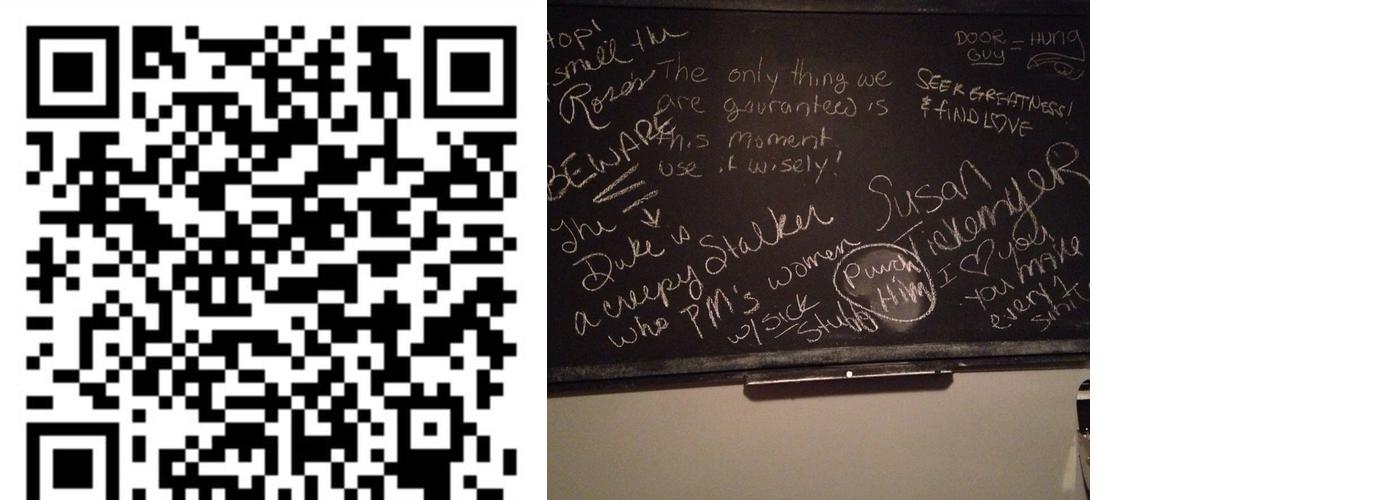 smell the
Roses
BEWARE
The
Duke is
a creepy Stalker
who PM's women
w/ sick
Stuff
Punch
Him
The only thing we
are gauranteed is
this moment
use it wisely!
DOOR = HUNG
GUY
SEEK GREATNESS!
& FIND LOVE
Susan
TickemyeR
I ♡ you
you make
every1